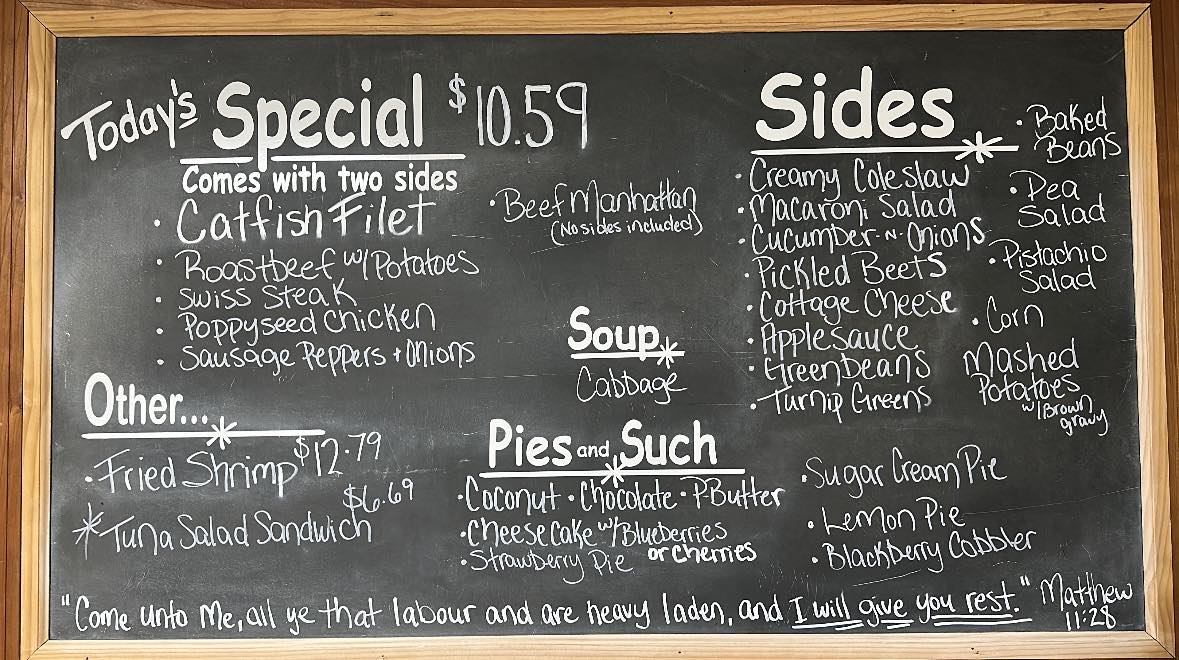 Today's Special $10.59
Comes with two sides
· Catfish Filet
· Roastbeef w/Potatoes
· Swiss Steak
· Poppyseed Chicken
· Sausage Peppers + Onions
· Beef Manhattan
(No sides included)
Other...
· Fried Shrimp $12.79
$6.69
* Tuna Salad Sandwich
Soup
Cabbage
Pies and Such
· Coconut · Chocolate · P·Butter
· Cheese Cake w/Blueberries
or Cherries
· Strawberry Pie
· Sugar Cream Pie
· Lemon Pie
· Blackberry Cobbler
Sides
· Creamy Coleslaw
· Macaroni Salad
· Cucumber-N-Onions
· Pickled Beets
· Cottage Cheese
· Applesauce
· Green Beans
· Turnip Greens
· Baked
Beans
· Pea
Salad
· Pistachio
Salad
· Corn
Mashed
Potatoes
w/Brown
gravy
"Come unto Me, all ye that labour and are heavy laden, and I will give you rest." Matthew
11:28